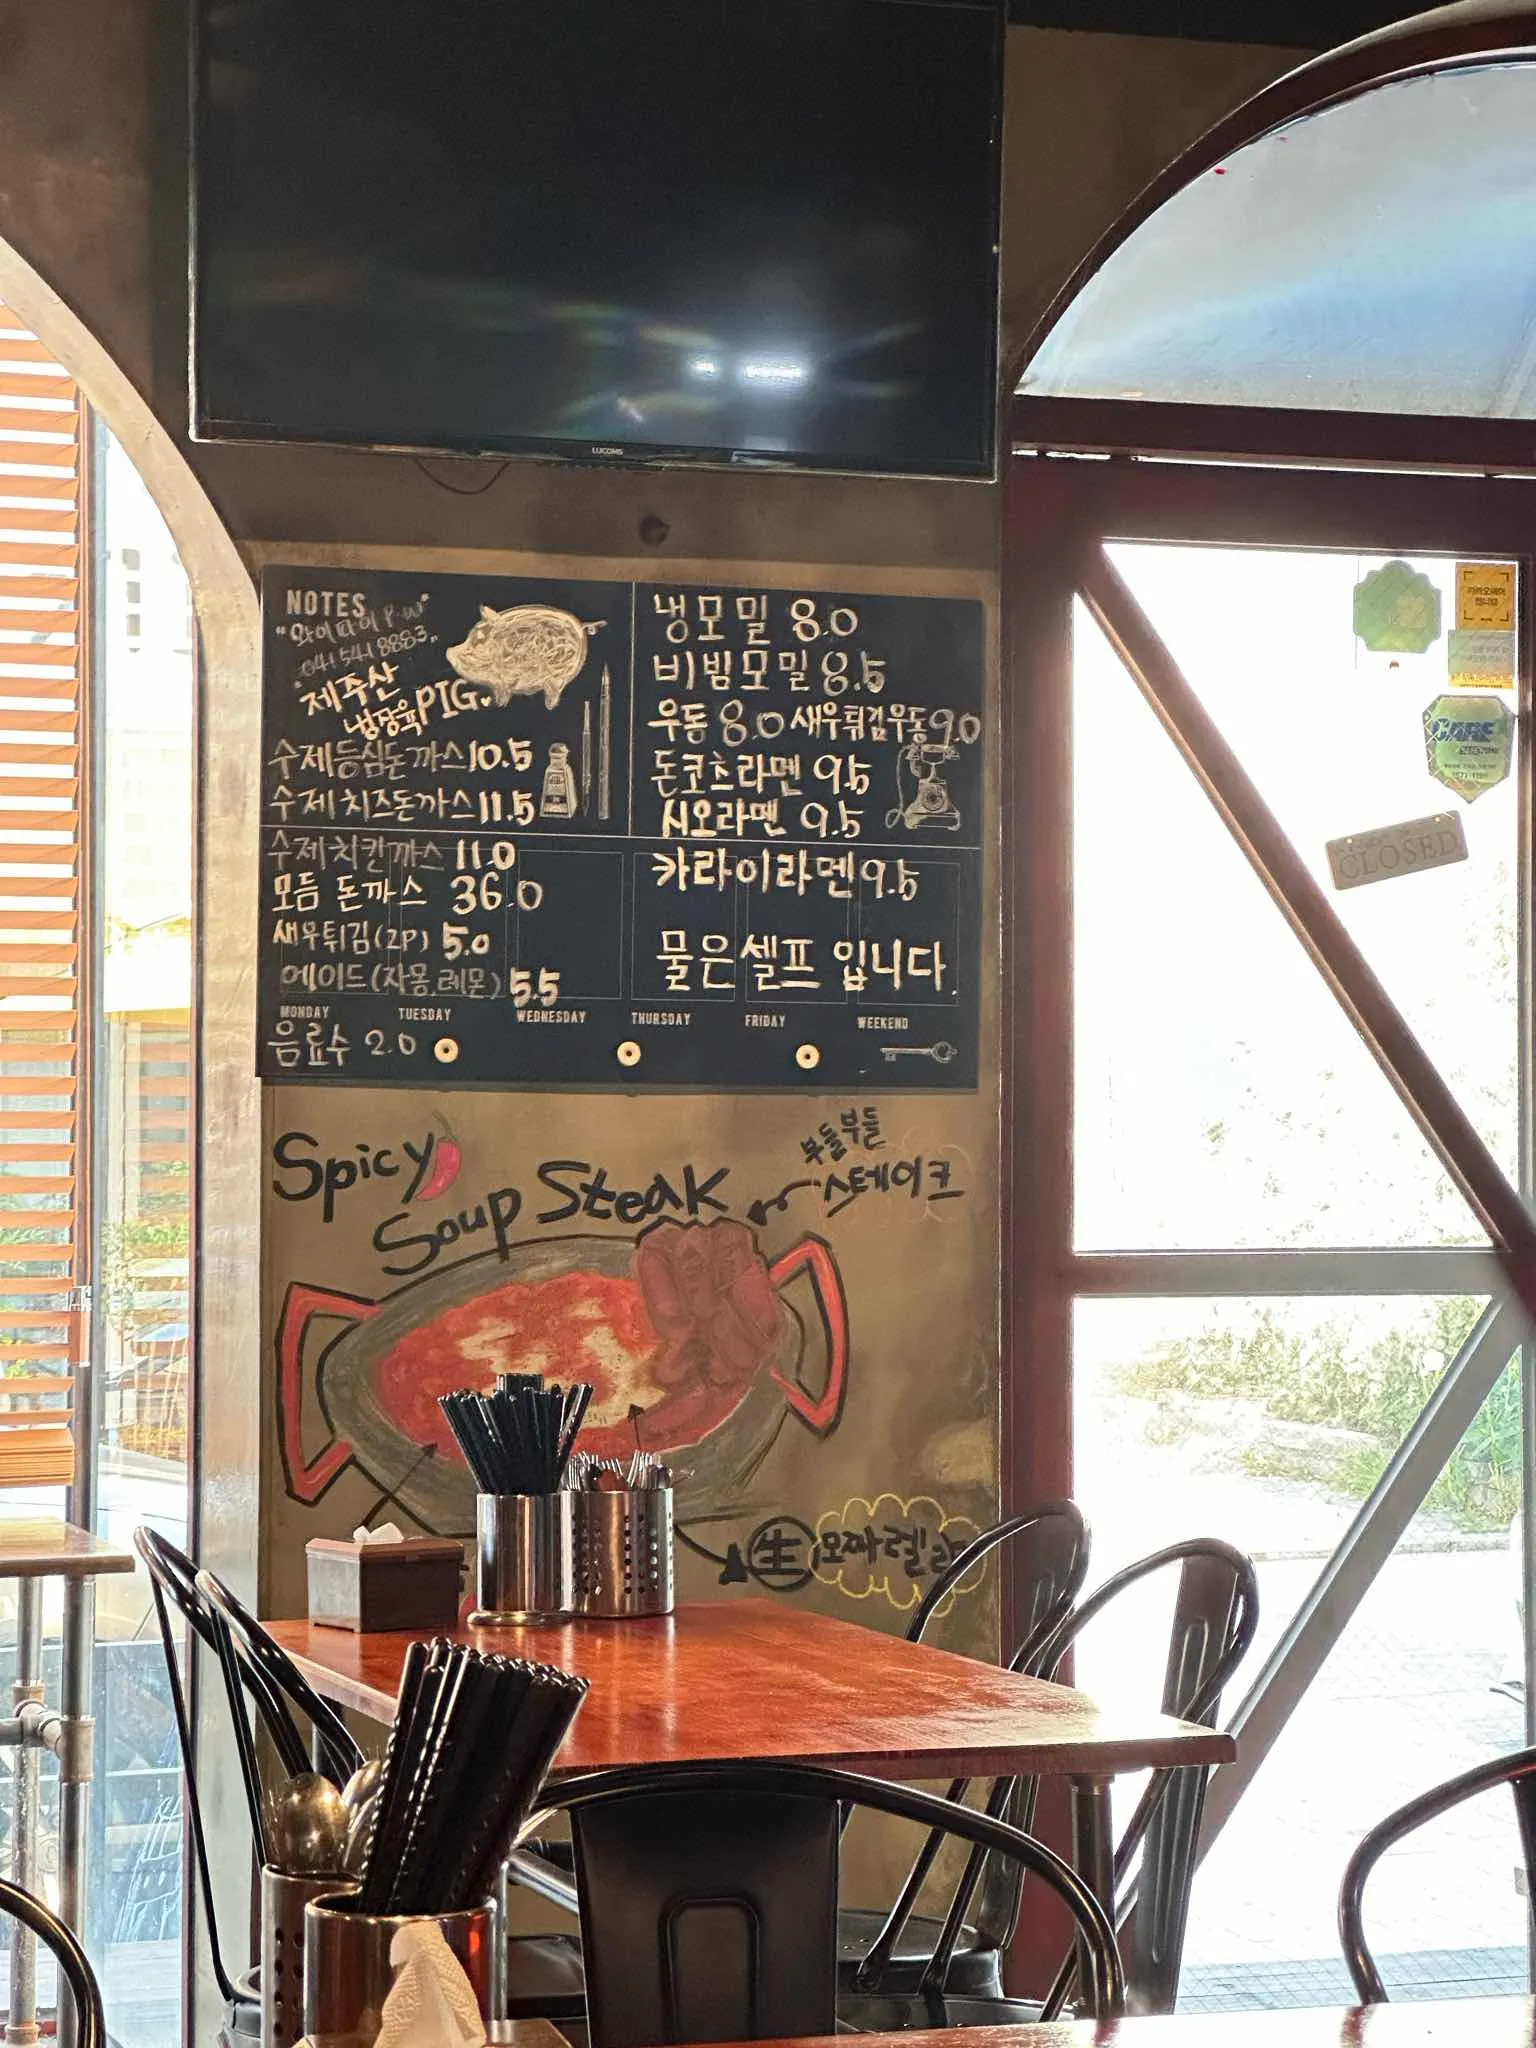 LUCOMS
NOTES
"와이파이 P.W"
041 541 8883"
"제주산
냉장육 PIG
수제등심돈까스 10.5
수제치즈돈까스 11.5
수제치킨까스 11.0
모듬 돈까스 36.0
새우튀김(2P) 5.0
에이드(자몽,레몬) 5.5
MONDAY TUESDAY WEDNESDAY THURSDAY FRIDAY WEEKEND
음료수 2.0
냉모밀 8.0
비빔모밀 8.5
우동 8.0 새우튀김우동 9.0
돈코츠라멘 9.5
시오라멘 9.5
카라이라멘 9.5
물은 셀프 입니다.
Spicy
Soup Steak
부들부들
스테이크
生 모짜렐라
CLOSED